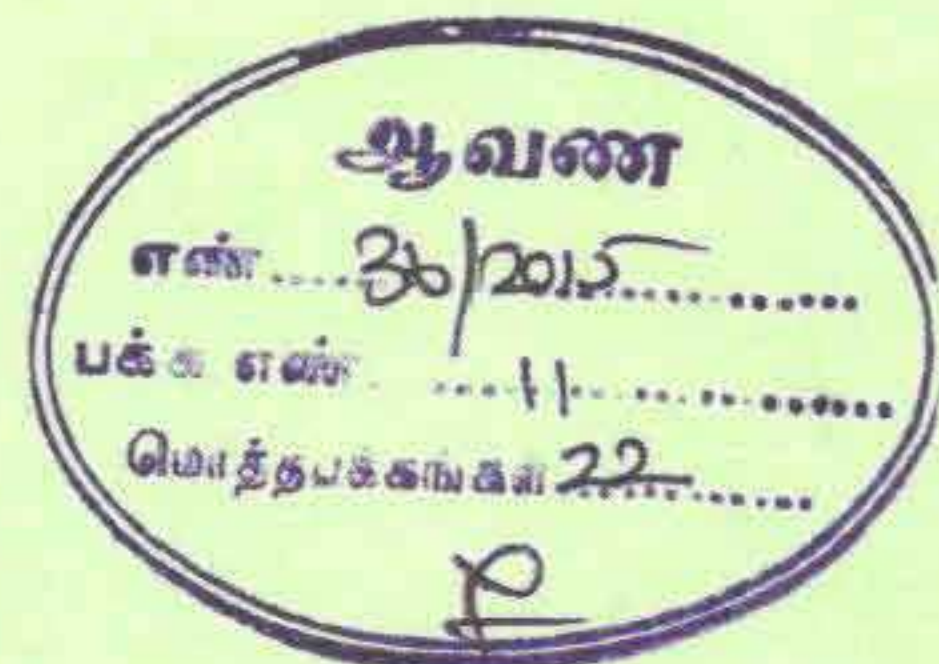 ஆவண
எண் .... 36/2015 ............
பக்க எண். .... 11 ............
மொத்தபக்கங்கள் 22 ........